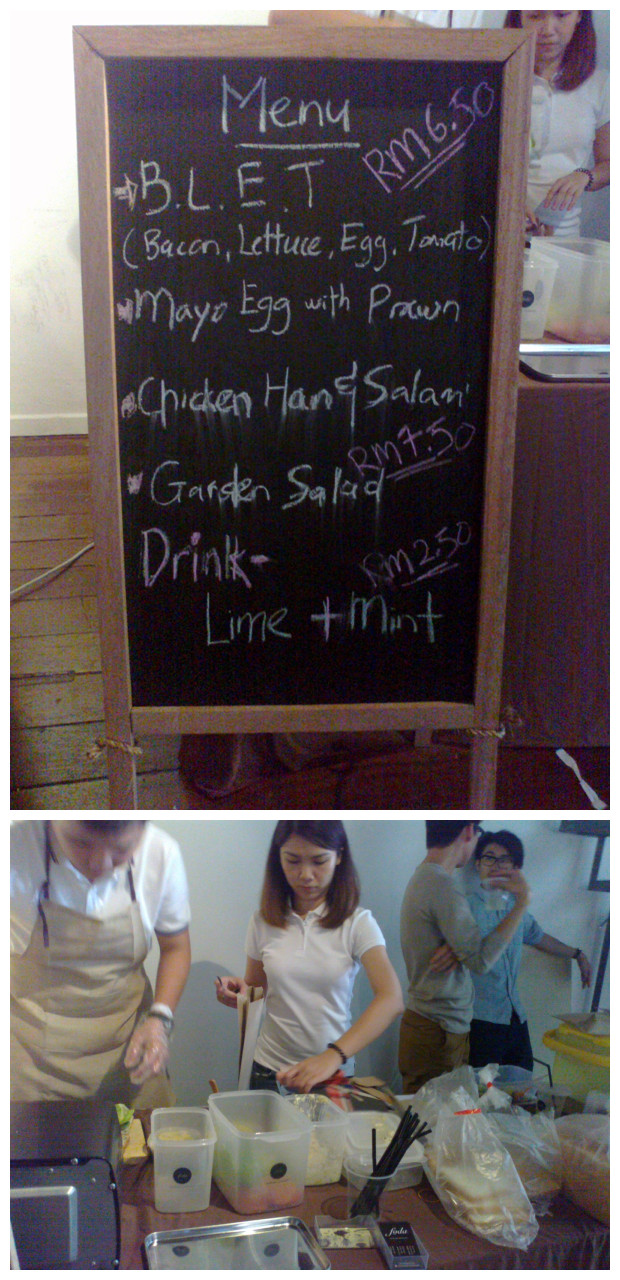 Menu
RM6.50
B.L.E.T
(Bacon, Lettuce, Egg, Tomato)
Mayo Egg with Prawn
Chicken Han & Salami
RM7.50
Garden Salad
Drink-
RM2.50
Lime + Mint